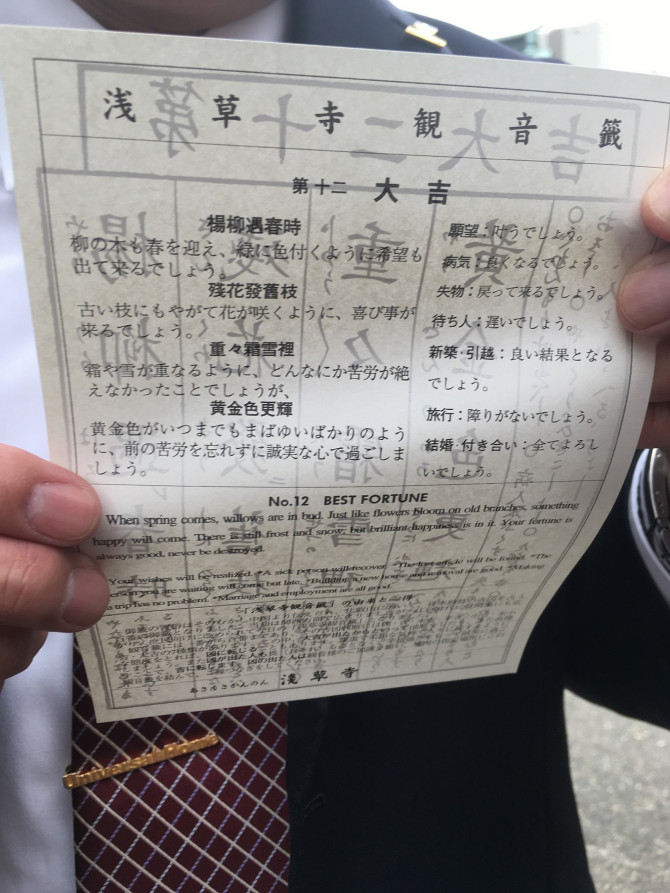 浅草寺観音籤
第十二 大吉
楊柳遇春時
柳の木も春を迎え、緑に色付くように希望も
出て来るでしょう。
殘花發舊枝
古い枝にもやがて花が咲くように、喜び事が
来るでしょう。
重々霜雪裡
霜や雪が重なるように、どんなにか苦労が絶
えなかったことでしょうが、
黄金色更輝
黄金色がいつまでもまばゆいばかりのよう
に、前の苦労を忘れずに誠実な心で過ごしま
しょう。
願望:叶うでしょう。
病気:良くなるでしょう。
失物:戻って来るでしょう。
待ち人:遅いでしょう。
新築・引越:良い結果となる
でしょう。
旅行:障りがないでしょう。
結婚・付き合い:全てよろし
いでしょう。
No.12 BEST FORTUNE
When spring comes, willows are in bud. Just like flowers bloom on old branches, something
happy will come. There is still frost and snow, but brilliant happiness is in it. Your fortune is
always good, never be destroyed.
Your wishes will be realized. *A sick person will recover. *The lost article will be found. *The
person you are waiting will come but late. *Building a new house and removal are good. *Making
a trip has no problem. *Marriage and employment are all good.
「浅草寺観音籤」の由来と心得
あさくさかんのん 浅草寺